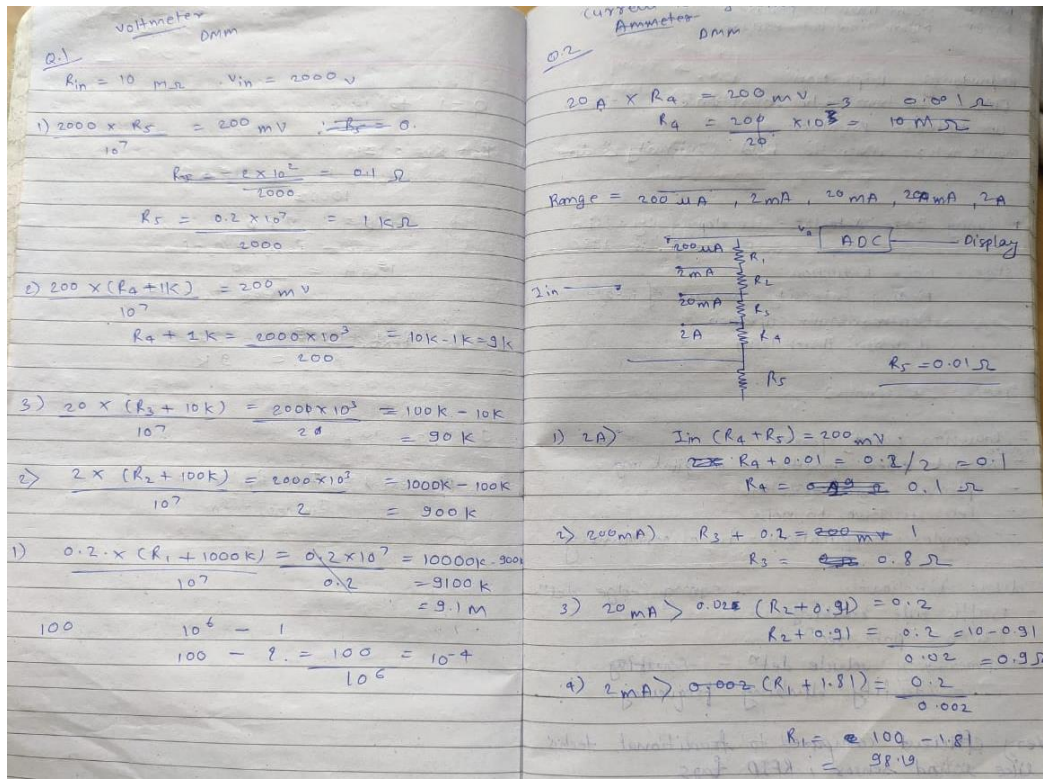 voltmeter
DMM
Q.1
Rin = 10 MΩ Vin = 2000 v
1) 2000 × R5 / 10^7 = 200 mv ∴ R5 = 0.
= 2×10^2 / 2000 = 0.1 Ω
R5 = 0.2 × 10^7 / 2000 = 1 kΩ
2) 200 × (R4 + 1K) / 10^7 = 200 mv
R4 + 1K = 2000×10^3 / 200 = 10K - 1K = 9K
3) 20 × (R3 + 10K) / 10^7 = 2000×10^3 / 20 = 100K - 10K
= 90 K
2> 2 × (R2 + 100K) / 10^7 = 2000×10^3 / 2 = 1000K - 100K
= 900 K
1) 0.2 × (R1 + 1000K) / 10^7 = 0.2 × 10^7 / 0.2 = 10000K - 900K
= 9100 K
= 9.1 M
100 10^6 - 1
100 - 2. = 100 / 10^6 = 10^-4
Ammeter
DMM
Q.2
20 A × R4 = 200 mv 0.001 Ω
R4 = 200 / 20 × 10^-3 = 10 M Ω
Range = 200 uA , 2 mA , 20 mA , 200 mA , 2A
ADC Display
200 uA R1
2mA R2
Iin
20mA R3
2A R4
R5 = 0.01 Ω
R5
1) 2A) Iin (R4 + R5) = 200 mv
R4 + 0.01 = 0.2/2 = 0.1
R4 = 0.1 Ω
2> 200mA) R3 + 0.2 = 200 mv 1
R3 = 0.8 Ω
3) 20 mA > 0.02 (R2 + 0.91) = 0.2
R2 + 0.91 = 0.2 / 0.02 = 10 - 0.91
= 0.9 Ω
4) 2 mA > 0.002 (R1 + 1.81) = 0.2 / 0.002
R1 = 100 - 1.81
= 98.19